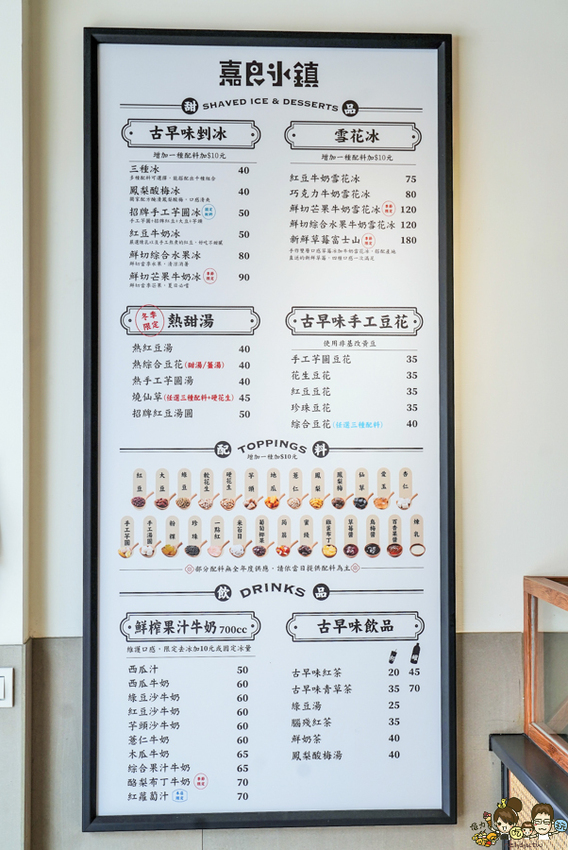 嘉良冰鎮
甜 SHAVED ICE & DESSERTS 品
古早味剉冰
增加一種配料加$10元
三種冰 40
鳳梨酸梅冰 40
招牌手工芋圓冰 50
手工芋圓+招牌紅豆+大豆+芋頭
紅豆牛奶冰 50
鮮切綜合水果冰 80
鮮切芒果牛奶冰 90
雪花冰
增加一種配料加$10元
紅豆牛奶雪花冰 75
巧克力牛奶雪花冰 80
鮮切芒果牛奶雪花冰 120
鮮切綜合水果牛奶雪花冰 120
新鮮草莓富士山 180
冬季限定 熱甜湯
熱紅豆湯 40
熱綜合豆花(甜湯/薑湯) 40
熱手工芋圓湯 40
燒仙草(任選三種配料+硬花生) 45
招牌紅豆湯圓 50
古早味手工豆花
使用非基改黃豆
手工芋圓豆花 35
花生豆花 35
紅豆豆花 35
珍珠豆花 35
綜合豆花(任選三種配料) 40
配 TOPPINGS 料
增加一種加$10元
紅豆 大豆 綠豆 軟花生 硬花生 芋頭 地瓜 薏仁 鳳梨 鳳梨梅 仙草 愛玉 杏仁
手工芋圓 手工湯圓 粉粿 珍珠 一點紅 米苔目 葡萄椰果 蒟蒻 蜜餞 雞蛋布丁 草莓醬 烏梅醬 百香果醬 煉乳
部分配料無全年度供應，請依當日提供配料為主
飲 DRINKS 品
鮮榨果汁牛奶 700cc
維護口感，限定去冰加10元或固定冰量
西瓜汁 50
西瓜牛奶 60
綠豆沙牛奶 60
紅豆沙牛奶 60
芋頭沙牛奶 60
薏仁牛奶 60
木瓜牛奶 65
綜合果汁牛奶 65
酪梨布丁牛奶 70
紅蘿蔔汁 70
古早味飲品
古早味紅茶 20 45
古早味青草茶 35 70
綠豆湯 25
腦殘紅茶 35
鮮奶茶 40
鳳梨酸梅湯 40